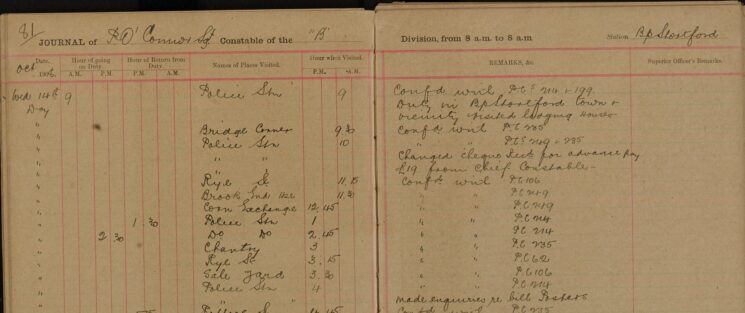 81
JOURNAL of P O'Connor Sgt Constable of the "B" Division, from 8 a.m. to 8 a.m Station BpStortford
Date. Hour of going on Duty. Hour of Return from Duty. Names of Places Visited. Hour when Visited. REMARKS, &c. Superior Officer's Remarks.
Oct 1906. A.M. P.M. P.M. A.M. P.M. A.M.
Wed 14th 9 Police Stn 9 Confd with P.Cs 214 + 199.
Day Duty in BpStortford Town +
" vicinity visited lodging Houses
" Bridge Corner 9 30 Confd with PC 235
" Police Stn 10 " " PCs 249 + 235
" " " Changed cheque Recd for advance pay
" £19 from Chief Constable
" Rye St 11,15 Confd with PC 106
" Brook End 11,30 " " PC 249
" Corn Exchange 12,45 " " PC 249
" 1 30 Police Stn 1 " " PC 214
" 2 30 Do Do 2.45 " " PC 214
" Chantry 3 " " PC 235
" Rye St 3.15 " " PC 62
" Sale Yard 3.30 " " PC 106
" Police Stn 4 " " PC 214
" made enquiries re bill Posters
" Police Stn 4.45 Confd with PC 235